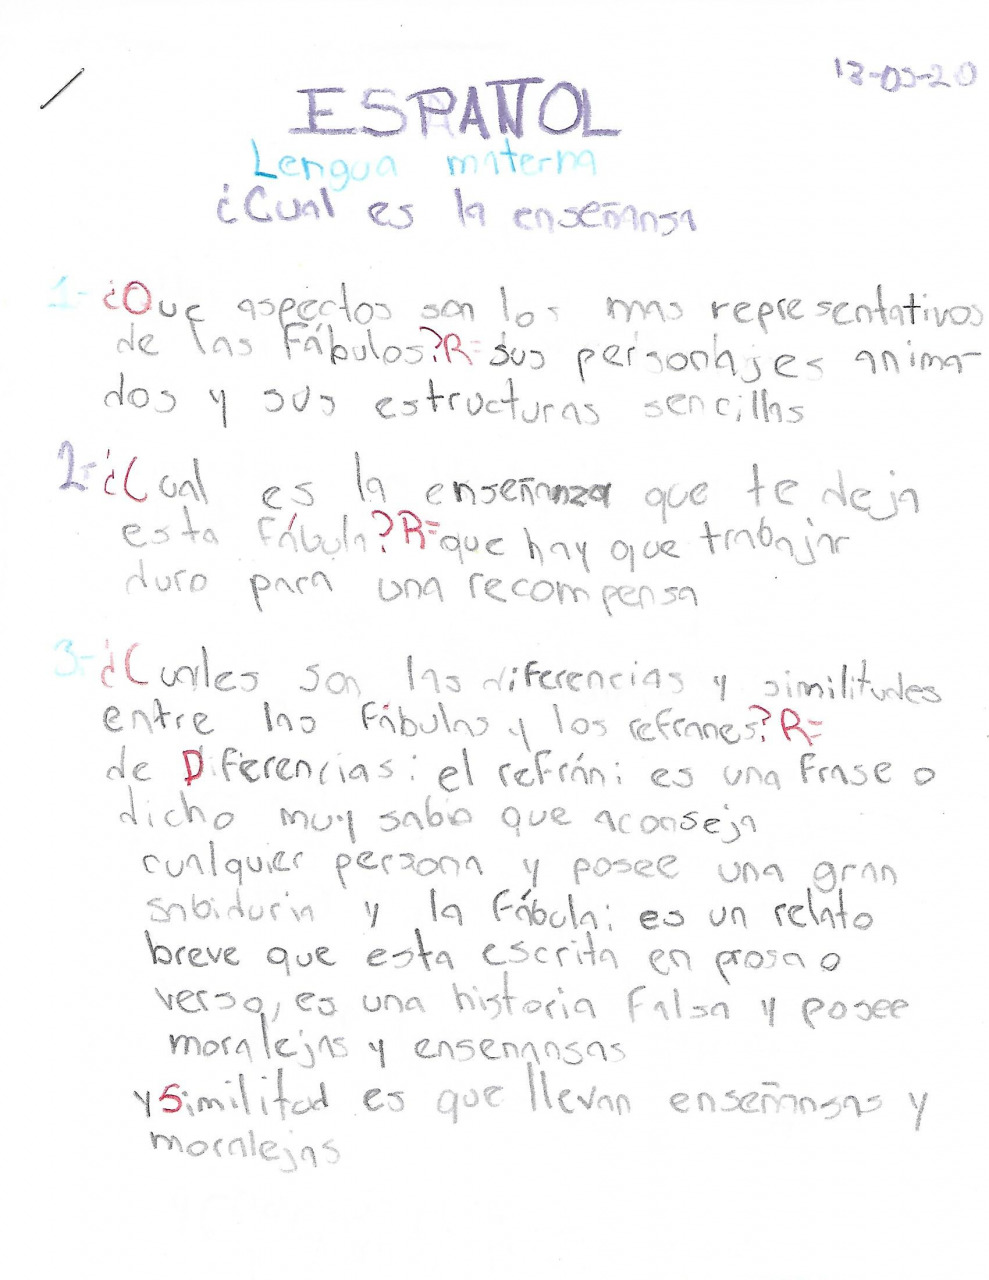 13-05-20
ESPAÑOL
Lengua materna
¿Cual es la enseñansa
1- ¿Que aspectos son los mas representativos
de las Fábulas? R= sus personajes anima-
dos y sus estructuras sencillas
2- ¿Cual es la enseñanza que te deja
esta Fábula? R= que hay que trabajar
duro para una recompensa
3- ¿Cuales son las diferencias y similitudes
entre las Fábulas y los refranes? R=
de Diferencias: el refrán: es una Frase o
dicho muy sabio que aconseja
cualquier persona y posee una gran
sabiduria y la Fábula: es un relato
breve que esta escrita en prosa o
verso, es una historia Falsa y posee
moralejas y ensenansas
y Similitad es que llevan enseñansas y
moralejas